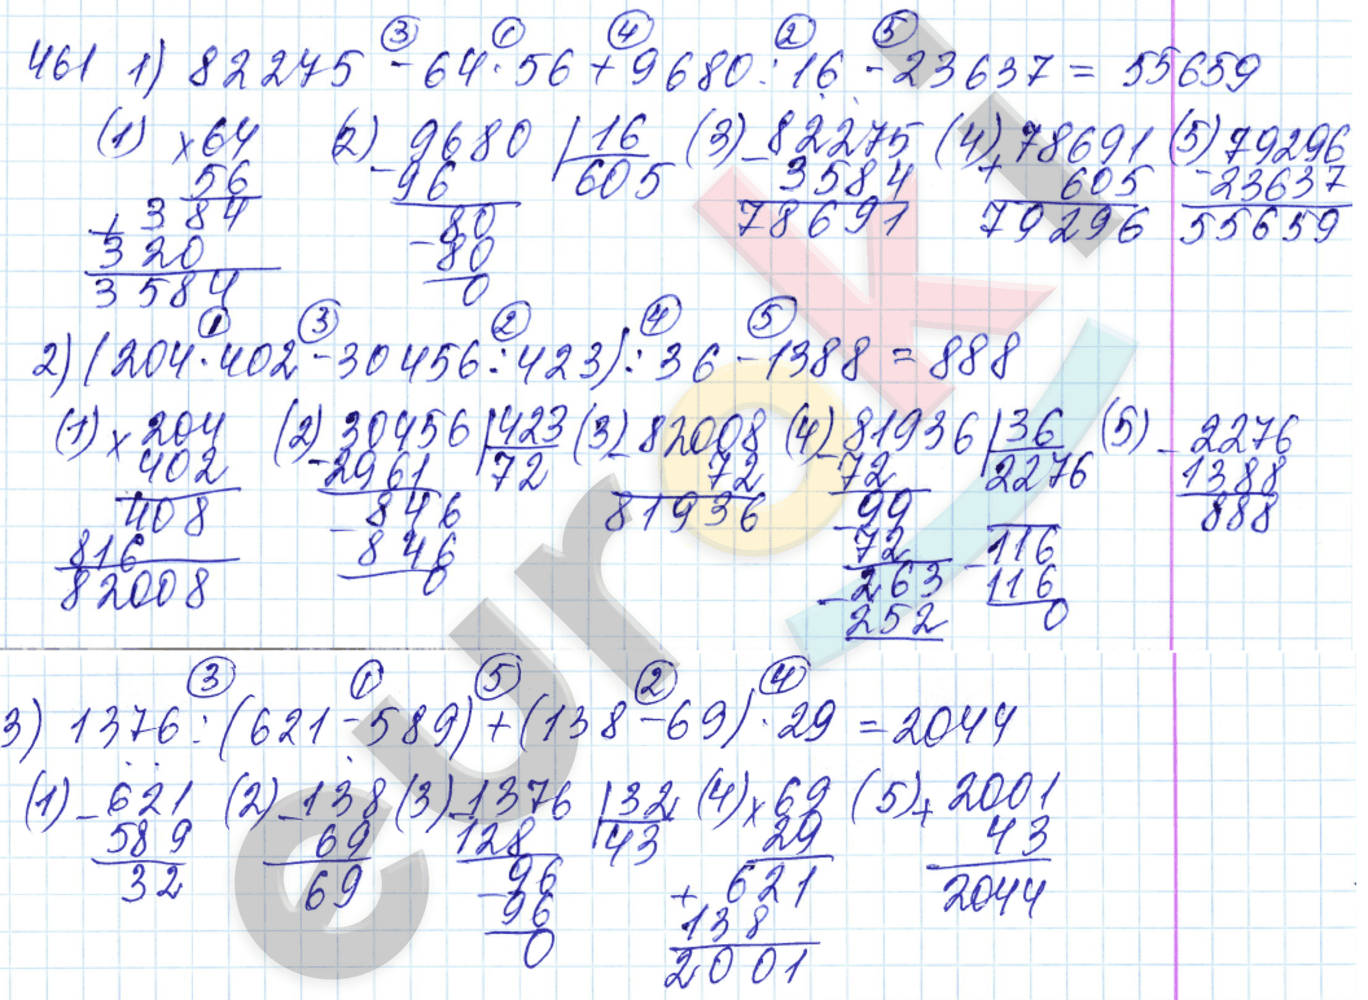 ③ ① ④ ② ⑤
461 1) 82275 - 64 · 56 + 9680 : 16 - 23637 = 55659
(1) × 64 (2) - 9680 | 16 (3) - 82275 (4) + 78691 (5) 79296
56 - 96 605 3584 605 - 23637
+ 384 80 78691 79296 55659
320 - 80
3584 0
① ③ ② ④ ⑤
2) (204 · 402 - 30456 : 423) : 36 - 1388 = 888
(1) × 204 (2) - 30456 | 423 (3) - 82008 (4) - 81936 | 36 (5) - 2276
402 - 2961 72 72 72 2276 1388
408 - 846 81936 - 99 888
816 846 72 - 116
82008 0 - 263 116
252 0
③ ① ⑤ ② ④
3) 1376 : (621 - 589) + (138 - 69) · 29 = 2044
(1) - 621 (2) - 138 (3) - 1376 | 32 (4) × 69 (5) + 2001
589 69 128 43 29 43
32 69 - 96 + 621 2044
96 138
0 2001
euroki